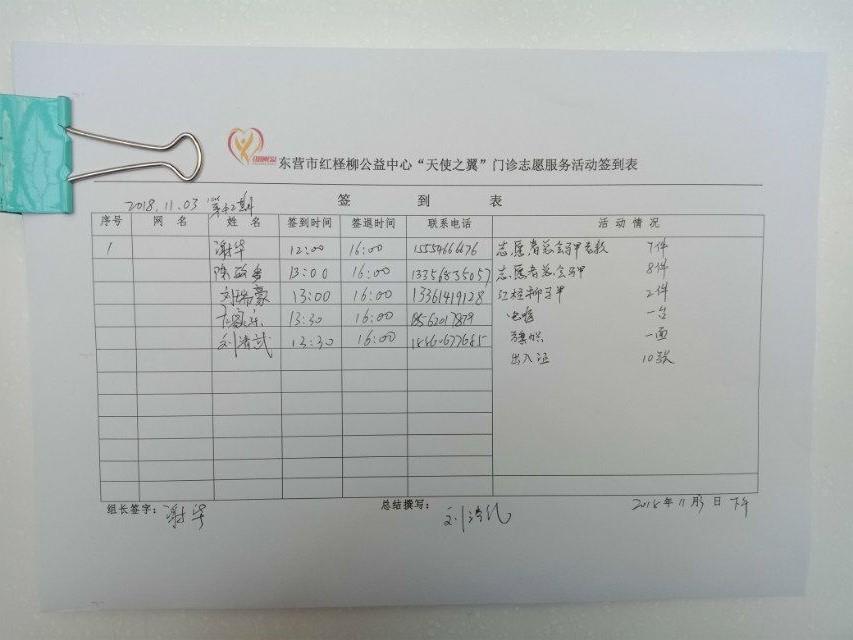 东营市红柽柳公益中心“天使之翼”门诊志愿服务活动签到表
2018.11.03 签到表
序号 网名 姓名 签到时间 签退时间 联系电话 活动情况
1 谢华 12:00 16:00 志愿者总会马甲 7件
13:00 16:00 13356835057 志愿者总会马甲 8件
刘瑞豪 13:00 16:00 13361419128 红柽柳马甲 2件
13:30 16:00 一台
13:30 16:00 一面
出入证 10张
组长签字：谢华 总结撰写： 2018年11月3日下午